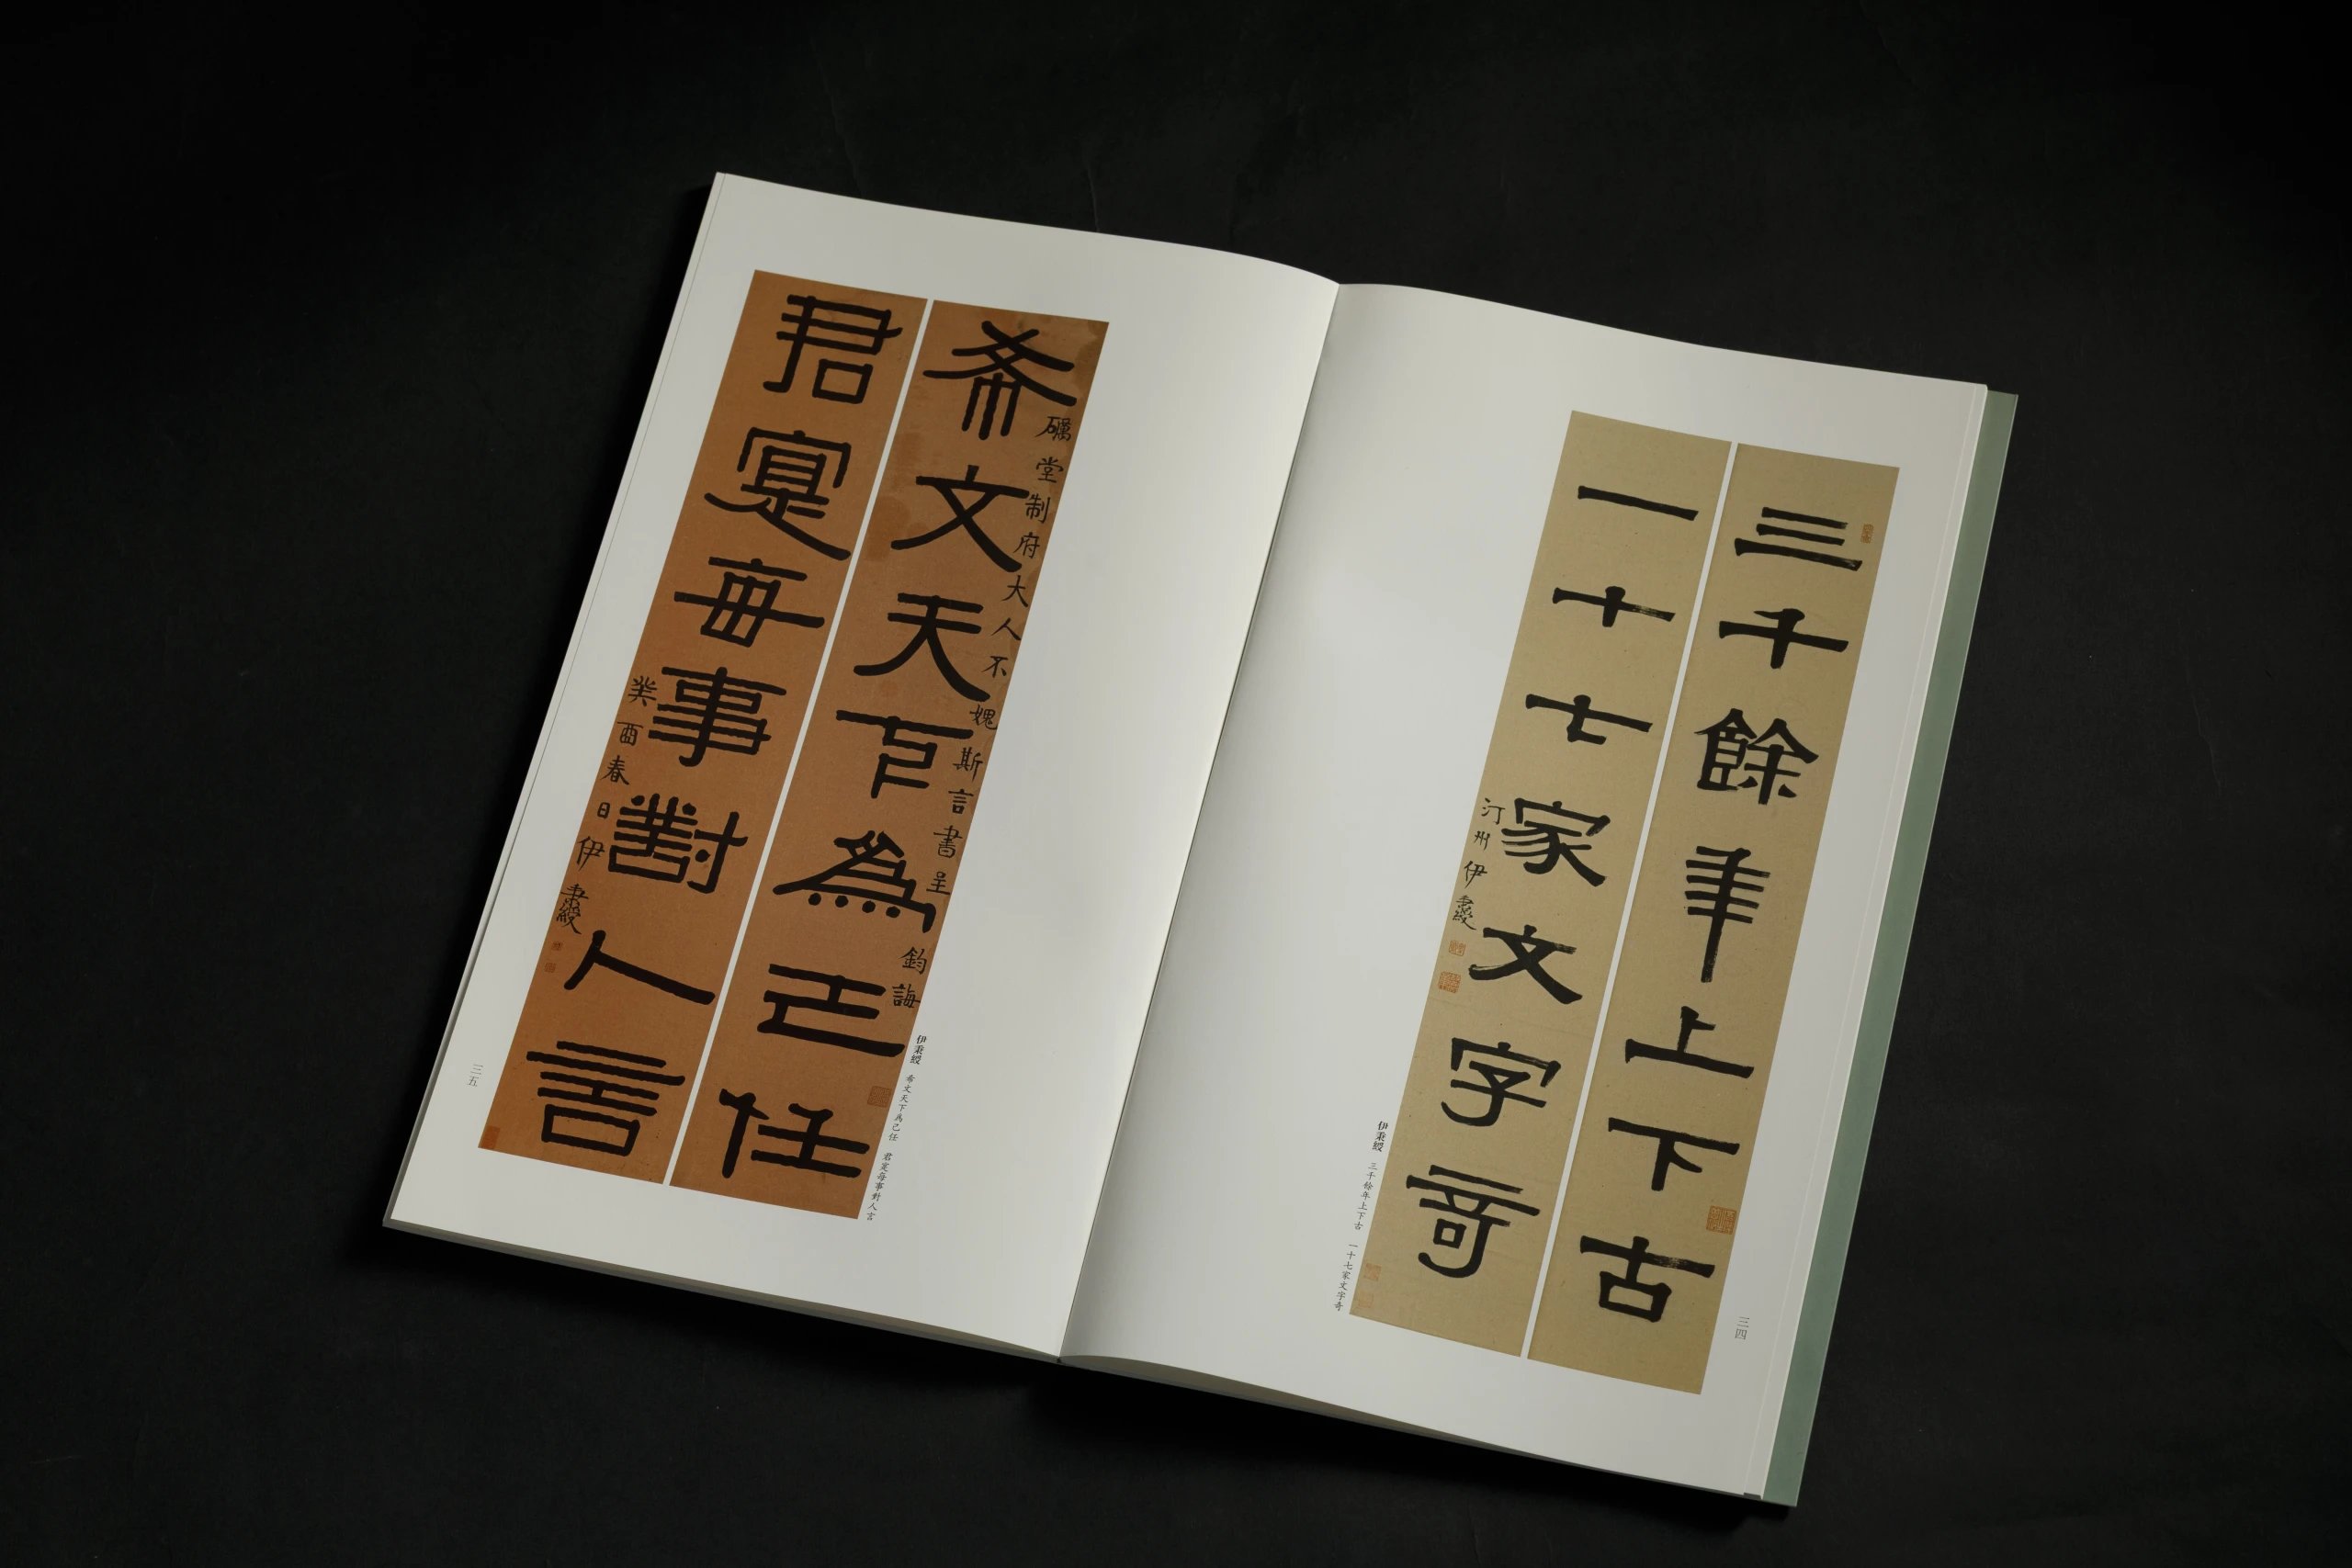 三千餘年上下古
一十七家文字奇
汀州伊秉綬
伊秉綬 三千餘年上下古 一十七家文字奇
三四
希文天下為己任
礪堂制府大人不媿斯言書呈
鈞誨
君寔每事對人言
癸酉春日伊秉綬
伊秉綬 希文天下為己任 君寔每事對人言
三五